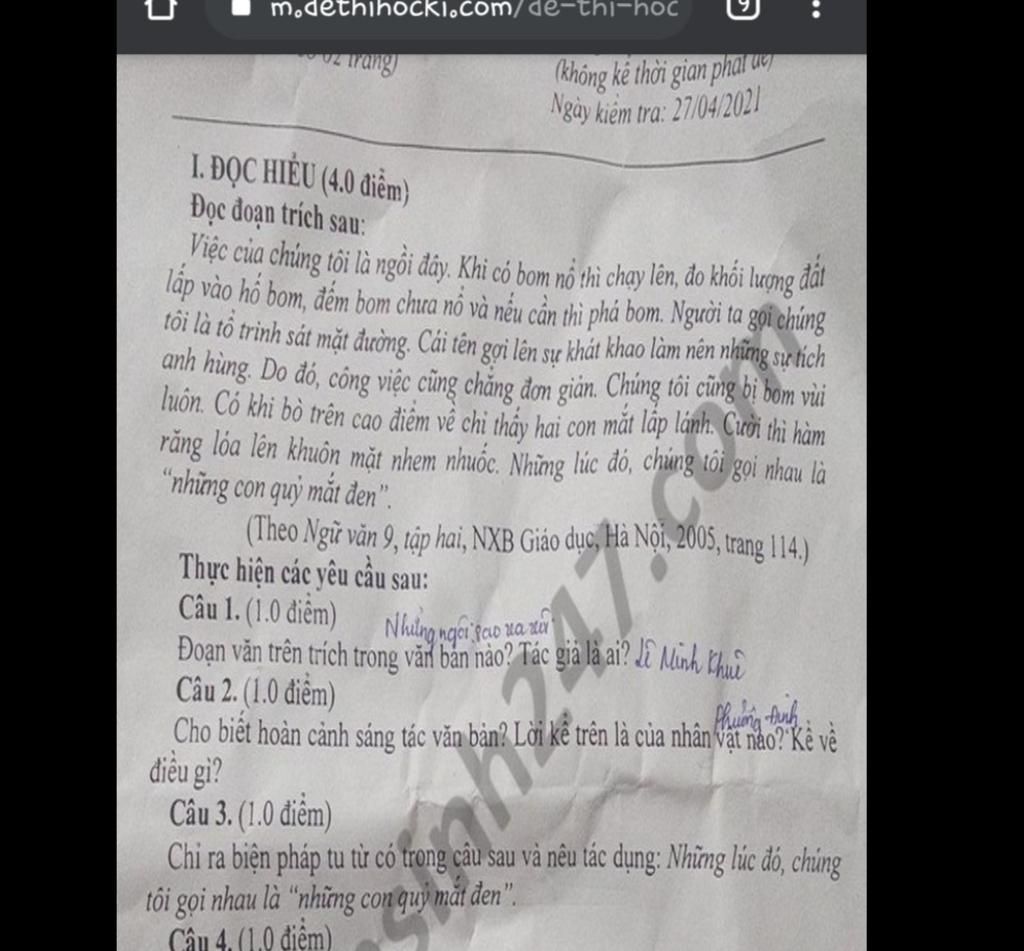 m.dethihocki.com/de-thi-hoc
9
02 trang)
(không kể thời gian phát đề)
Ngày kiểm tra: 27/04/2021
I. ĐỌC HIỂU (4.0 điểm)
Đọc đoạn trích sau:
Việc của chúng tôi là ngồi đây. Khi có bom nổ thì chạy lên, đo khối lượng đất
lấp vào hố bom, đếm bom chưa nổ và nếu cần thì phá bom. Người ta gọi chúng
tôi là tổ trinh sát mặt đường. Cái tên gợi lên sự khát khao làm nên những sự tích
anh hùng. Do đó, công việc cũng chẳng đơn giản. Chúng tôi cũng bị bom vùi
luôn. Có khi bò trên cao điểm về chỉ thấy hai con mắt lấp lánh. Cười thì hàm
răng lóa lên khuôn mặt nhem nhuốc. Những lúc đó, chúng tôi gọi nhau là
“những con quỷ mắt đen”.
(Theo Ngữ văn 9, tập hai, NXB Giáo dục, Hà Nội, 2005, trang 114.)
Thực hiện các yêu cầu sau:
Câu 1. (1.0 điểm)
Những ngôi sao xa xôi
Đoạn văn trên trích trong văn bản nào? Tác giả là ai? Lê Minh Khuê
Câu 2. (1.0 điểm)
Phương Định
Cho biết hoàn cảnh sáng tác văn bản? Lời kể trên là của nhân vật nào? Kể về
điều gì?
Câu 3. (1.0 điểm)
Chỉ ra biện pháp tu từ có trong câu sau và nêu tác dụng: Những lúc đó, chúng
tôi gọi nhau là “những con quỷ mắt đen”.
Câu 4. (1.0 điểm)
sinh247.com